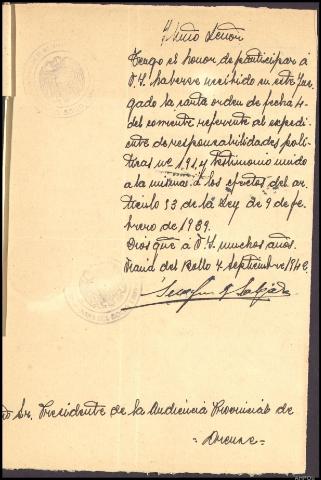 Iltmo Señor:
Tengo el honor de participar á
V.I. haberse recibido en este Juz-
gado la carta orden de fecha 4
del corriente referente al expedi-
ente de responsabilidades polí-
ticas nº 191 y testimonio unido
a la misma á los efectos del ar-
tículo 53 de la Ley de 9 de fe-
brero de 1939.
Dios que á V.I. muchos años.
Viana del Bollo 7 Septiembre 1942.
Sr. Presidente de la Audiencia Provincial de
Orense=